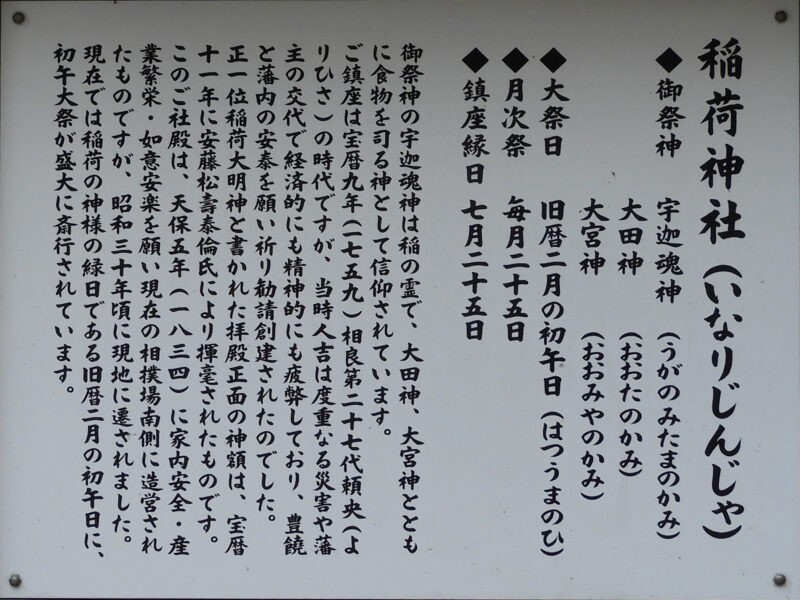 稲荷神社（いなりじんじゃ）
◆御祭神　宇迦魂神（うがのみたまのかみ）
大田神　（おおたのかみ）
大宮神　（おおみやのかみ）
◆大祭日　旧暦二月の初午日（はつうまのひ）
◆月次祭　毎月二十五日
◆鎮座縁日　七月二十五日
御祭神の宇迦魂神は稲の霊で、大田神、大宮神ととも
に食物を司る神として信仰されています。
ご鎮座は宝暦九年（一七五九）相良第二十七代頼央（よ
りひさ）の時代ですが、当時人吉は度重なる災害や藩
主の交代で経済的にも精神的にも疲弊しており、豊饒
と藩内の安泰を願い祈り勧請創建されたのでした。
正一位稲荷大明神と書かれた拝殿正面の神額は、宝暦
十一年に安藤松壽泰倫氏により揮毫されたものです。
このご社殿は、天保五年（一八三四）に家内安全・産
業繁栄・如意安楽を願い現在の相撲場南側に造営され
たものですが、昭和三十年頃に現地に遷されました。
現在では稲荷の神様の縁日である旧暦二月の初午日に、
初午大祭が盛大に斎行されています。